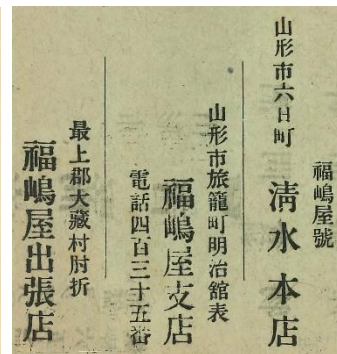 山形市六日町
福嶋屋號
淸水本店
山形市旅籠町明治舘表
福嶋屋支店
電話四百三十五番
最上郡大藏村肘折
福嶋屋出張店